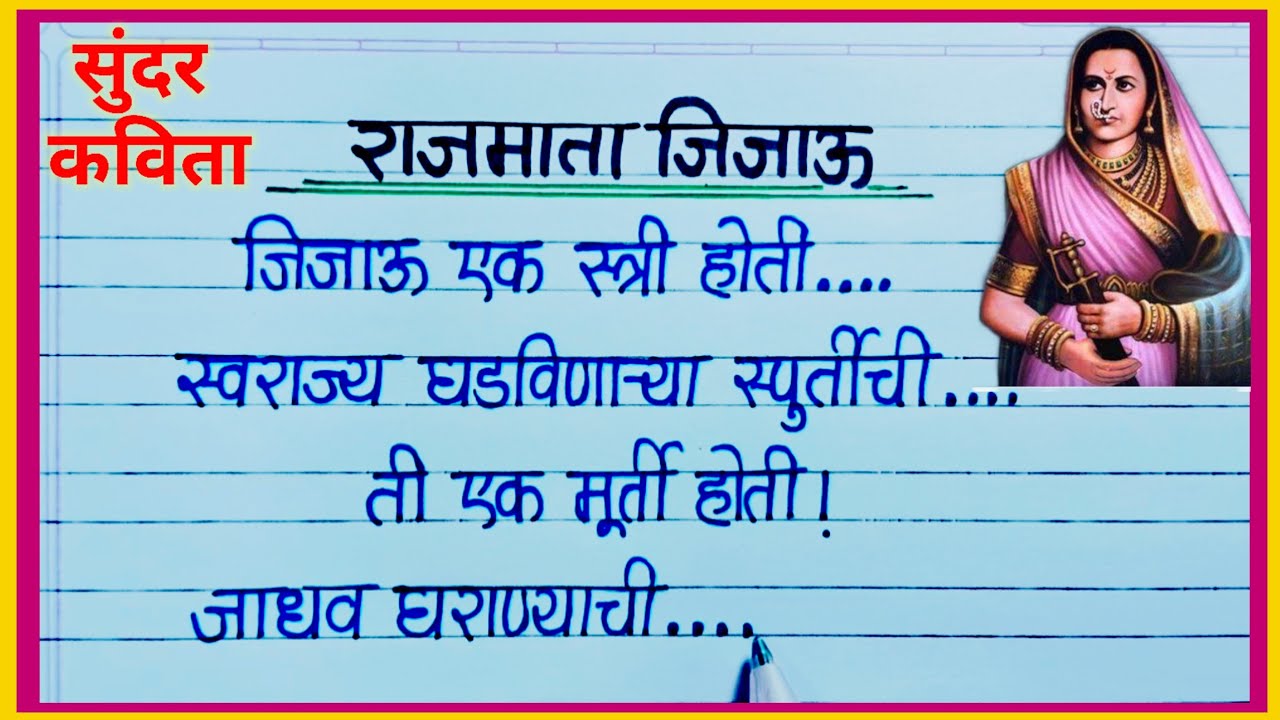 सुंदर
कविता
राजमाता जिजाऊ
जिजाऊ एक स्त्री होती....
स्वराज्य घडविणाऱ्या स्पुर्तीची....
ती एक मूर्ती होती!
जाधव घराण्याची....